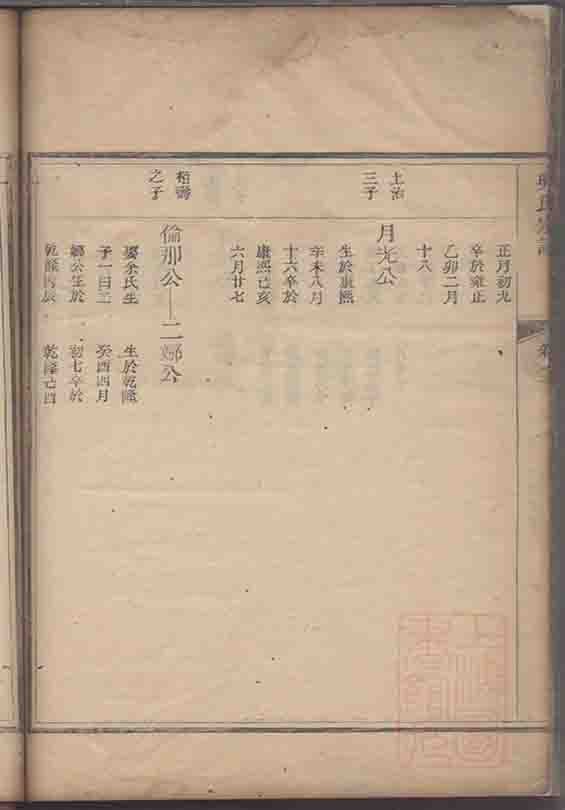 正月初九
卒於雍正
乙卯二月
十八
士治
三子
月光公
生於康熙
辛未八月
十六卒於
康熙己亥
六月廿七
之子
倫那公—二郷公
娶余氏生
子一曰二
公生於
乾隆丙辰
生於乾隆
癸酉四月
初七卒於
乾隆己酉